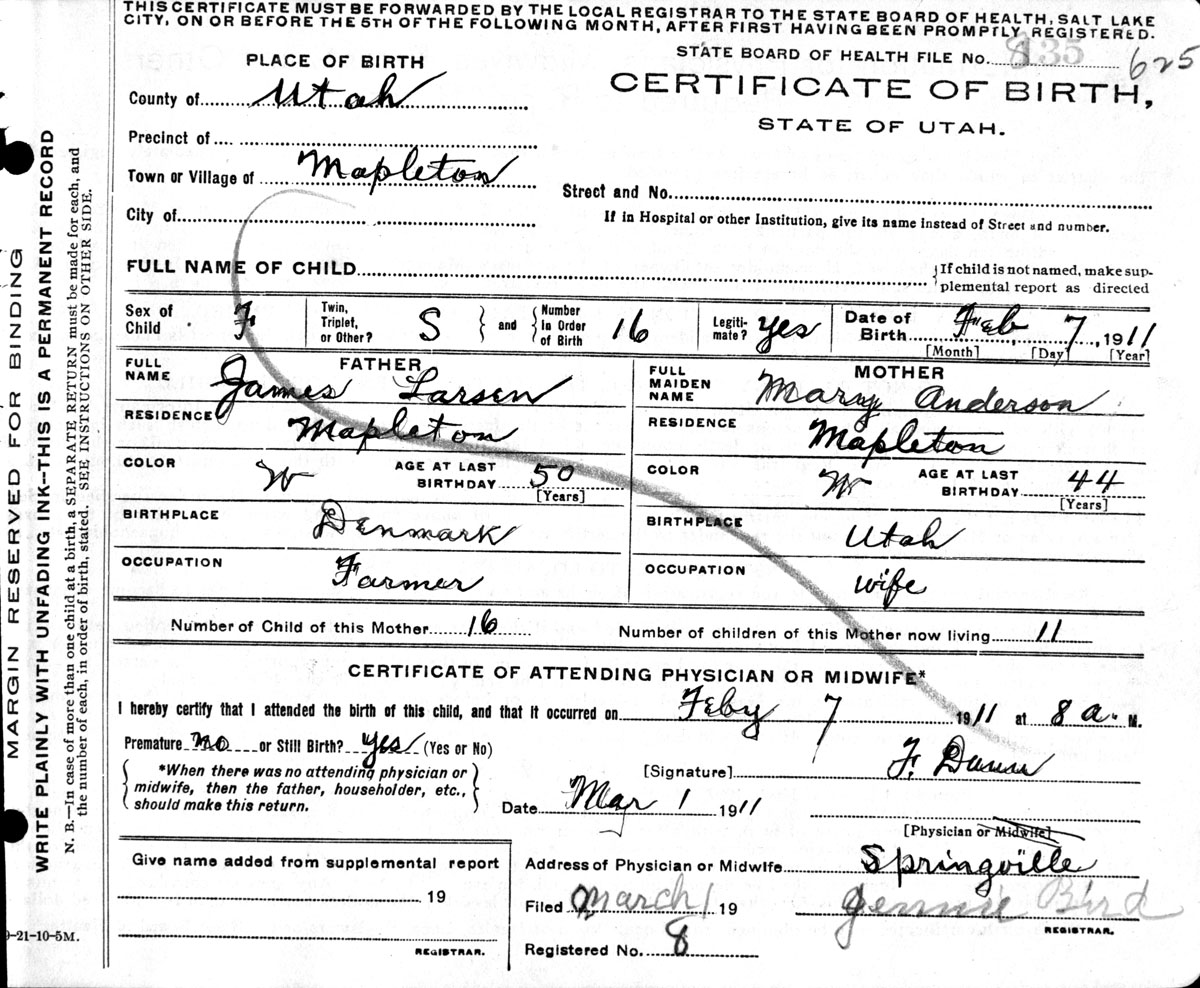 THIS CERTIFICATE MUST BE FORWARDED BY THE LOCAL REGISTRAR TO THE STATE BOARD OF HEALTH, SALT LAKE
CITY, ON OR BEFORE THE 5TH OF THE FOLLOWING MONTH, AFTER FIRST HAVING BEEN PROMPTLY REGISTERED.
STATE BOARD OF HEALTH FILE No. 625
PLACE OF BIRTH
CERTIFICATE OF BIRTH,
STATE OF UTAH.
County of Utah
Precinct of
Town or Village of Mapleton
Street and No.
City of
If in Hospital or other Institution, give its name instead of Street and number.
FULL NAME OF CHILD
If child is not named, make sup-
plemental report as directed
Sex of Child F Twin, Triplet, or Other? S and Number In Order of Birth 16 Legiti-mate? yes Date of Birth Feb 7, 1911
[Month] [Day] [Year]
FATHER
FULL NAME James Larsen
RESIDENCE Mapleton
COLOR W AGE AT LAST BIRTHDAY 50
[Years]
BIRTHPLACE Denmark
OCCUPATION Farmer
MOTHER
FULL MAIDEN NAME Mary Anderson
RESIDENCE Mapleton
COLOR W AGE AT LAST BIRTHDAY 44
[Years]
BIRTHPLACE Utah
OCCUPATION wife
Number of Child of this Mother 16 Number of children of this Mother now living 11
CERTIFICATE OF ATTENDING PHYSICIAN OR MIDWIFE*
I hereby certify that I attended the birth of this child, and that it occurred on Feby 7 1911 at 8 a. M.
Premature no or Still Birth? yes (Yes or No)
*When there was no attending physician or
midwife, then the father, householder, etc.,
should make this return.
[Signature] F. Dunn
Date Mar 1 1911
[Physician or Midwife]
Give name added from supplemental report
19
REGISTRAR.
Address of Physician or Midwife Springville
Filed March 1 19 Jennie Bird
REGISTRAR.
Registered No. 8
9-21-10-5M.
MARGIN RESERVED FOR BINDING
WRITE PLAINLY WITH UNFADING INK—THIS IS A PERMANENT RECORD
N. B.—In case of more than one child at a birth, a SEPARATE RETURN must be made for each, and
the number of each, in order of birth, stated. SEE INSTRUCTIONS ON OTHER SIDE.